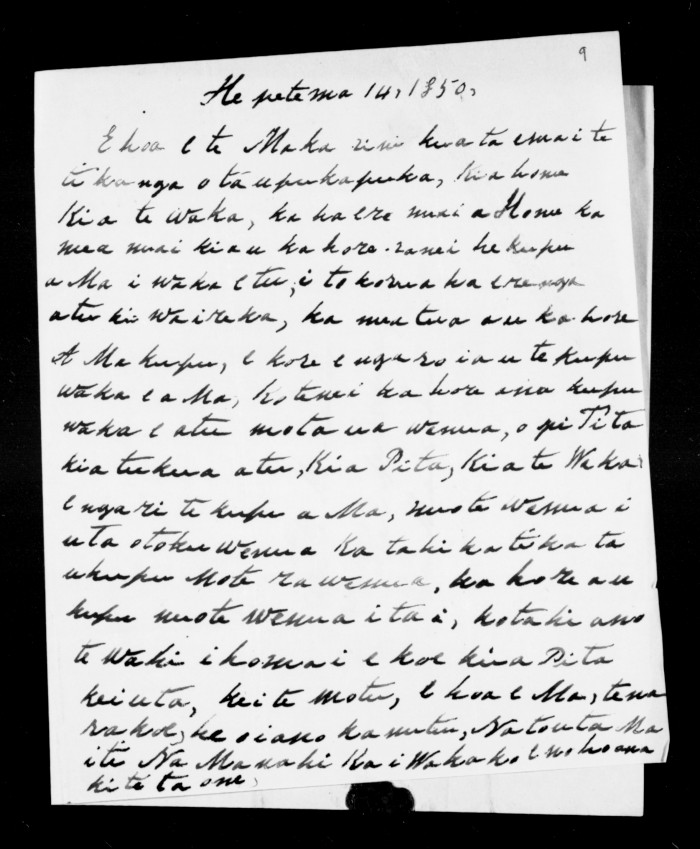 9
He petema 14, 1850,
E hoa e te Maka rini kua tae mai te
tikanga o tau pukapuka, Kia hone
Kia te Waka, ka haere mai a Hone ka
mea mai kia au kahore ranei he kupu
a Ma i waka etu, i to korua haerenga
atu ki Waireka, ka mea tua au kahore
A Ma kupu, e kore e ngaro i a u te kupu
waka e a Ma, Kotenei kahore ana kupu
waka e atu mota ua wenua, o pi Tita
kia tukua atu, Kia Pita, Kia te Waka
engari te kupu a Ma, mo te wenua i
uta o toku wenua Ka tahi ka tika ta
u kupu mo te ra wenua, kahore au
kupu mo te wenua i tai, kotahi ano
te wahi i homai e koe kia Pita
kei uta, kei te motu, E hoa e Ma, tena
ra koe, he oi ano ka mutu, Na to uta Ma
ite Na Manahi Kai Waka ko e noho ana
ki te ta one,